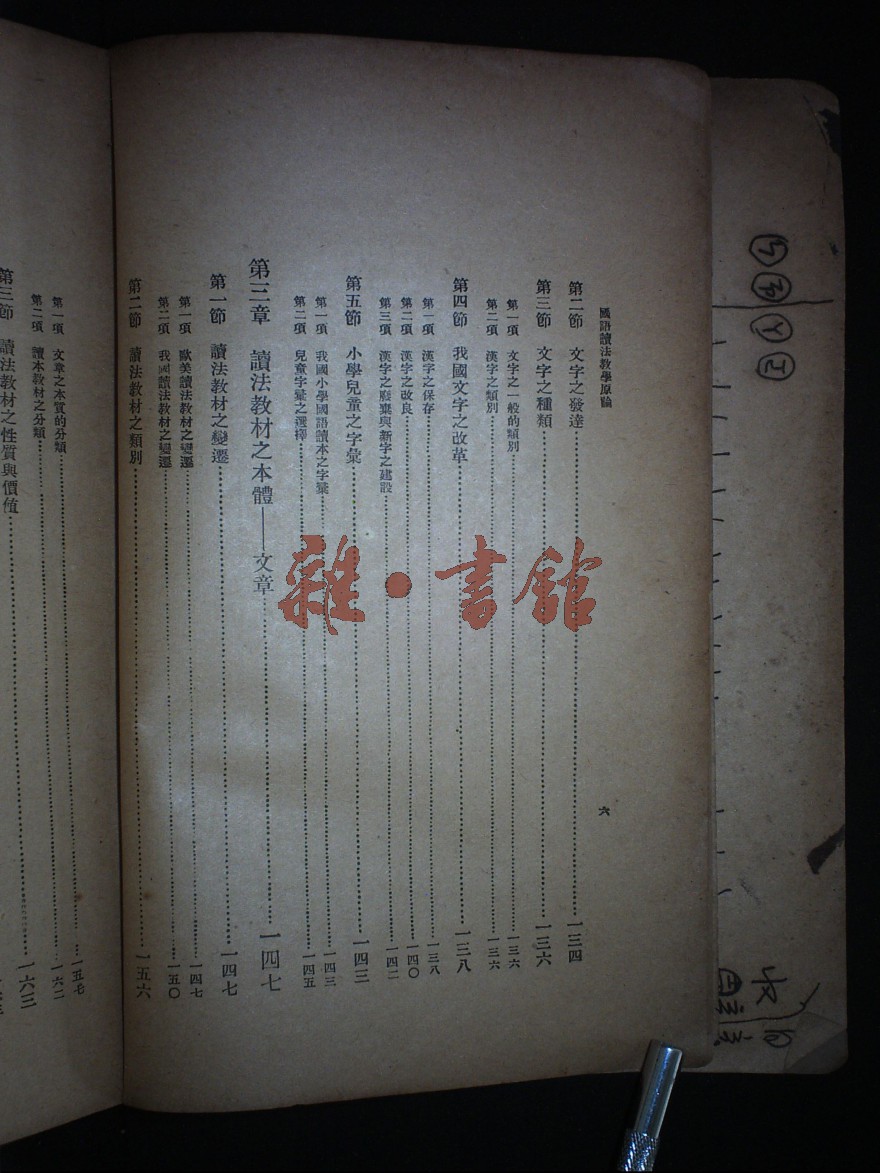 國語讀法教學原論
六
第二節 文字之發達 一三四
第三節 文字之種類 一三六
第一項 文字之一般的類別 一三六
第二項 漢字之類別 一三六
第四節 我國文字之改革 一三八
第一項 漢字之保存 一三八
第二項 漢字之改良 一四〇
第三項 漢字之廢棄與新字之建設 一四二
第五節 小學兒童之字彙 一四三
第一項 我國小學國語讀本之字彙 一四三
第二項 兒童字彙之選擇 一四五
第三章 讀法教材之本體——文章 一四七
第一節 讀法教材之變遷 一四七
第一項 歐美讀法教材之變遷 一四七
第二項 我國讀法教材之變遷 一五〇
第二節 讀法教材之類別 一五六
第一項 文章之本質的分類 一五七
第二項 讀本教材之分類 一六二
第三節 讀法教材之性質與價值 一六三
雜·書館